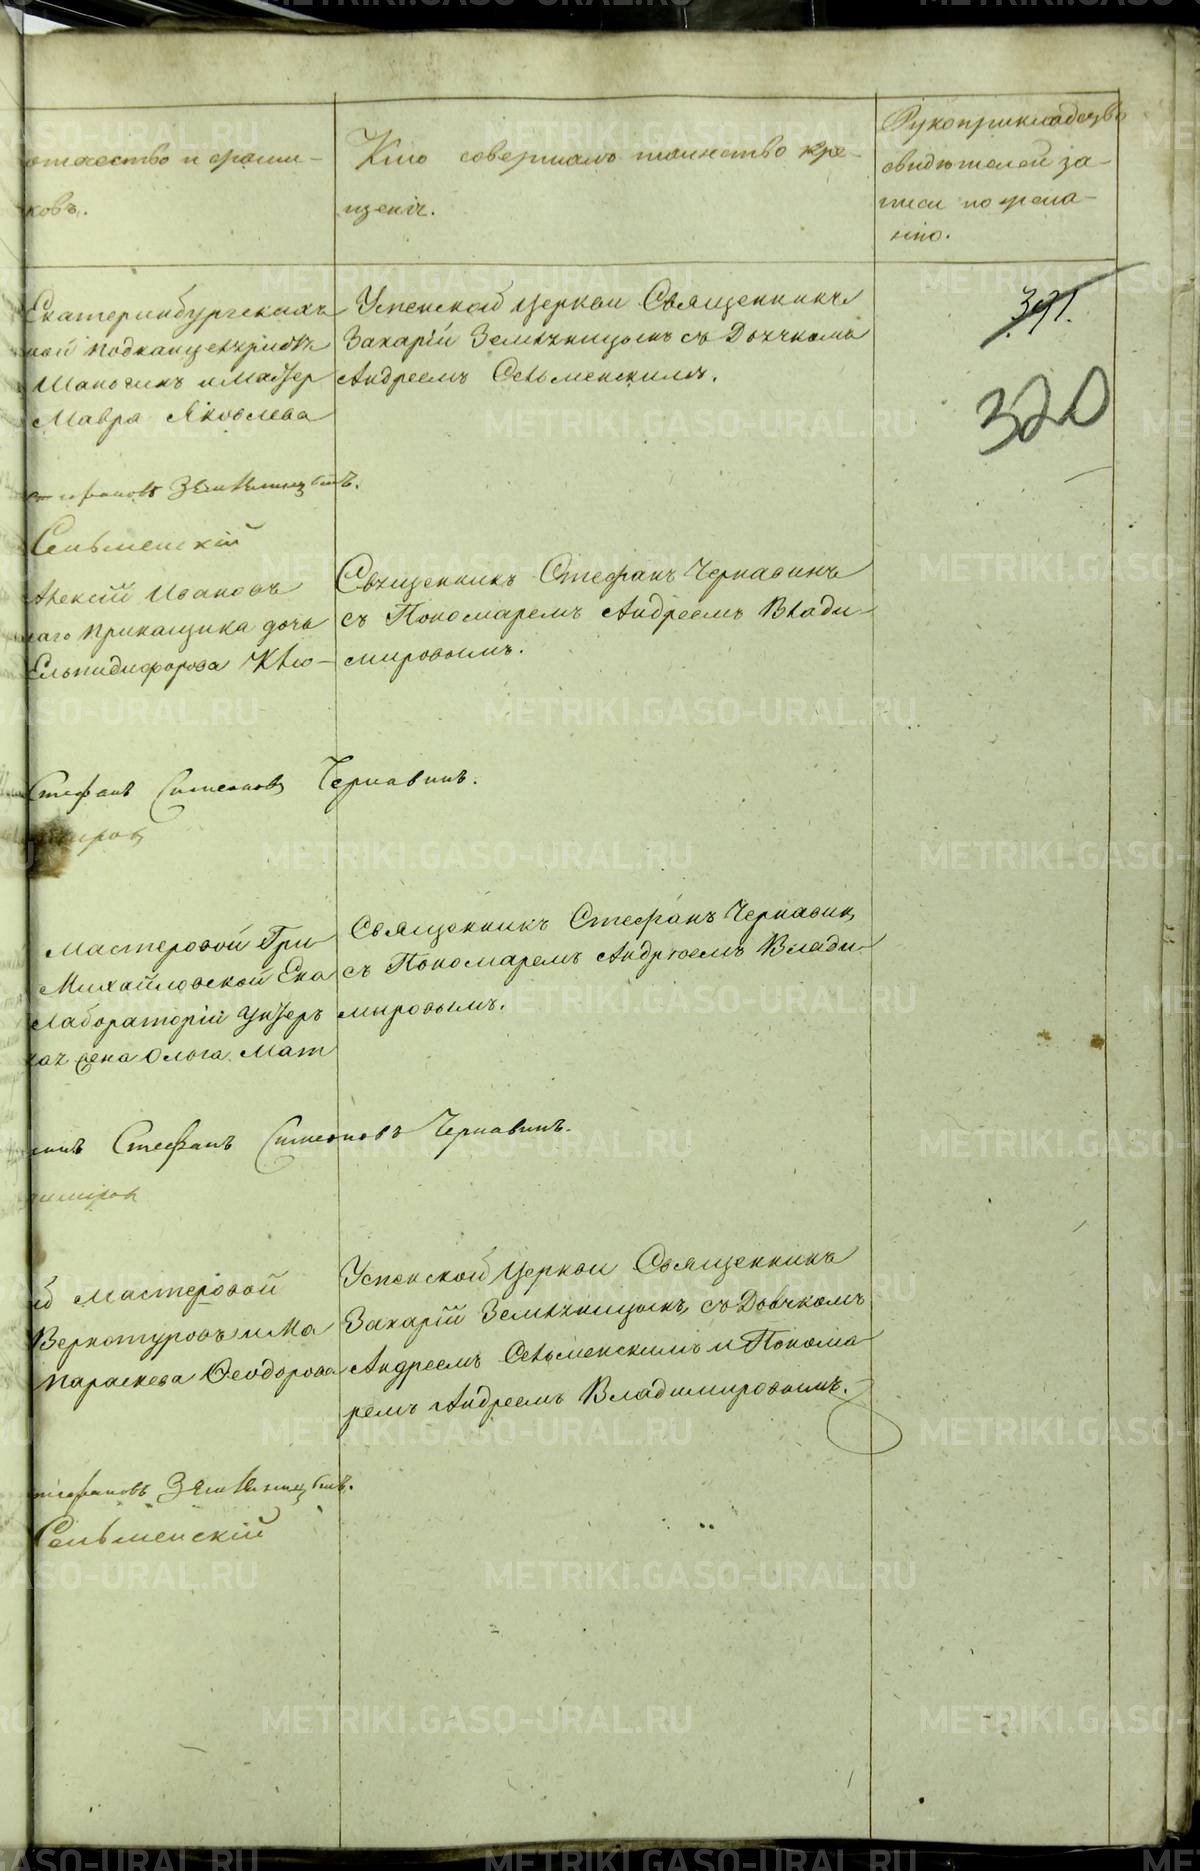 отчество и фами-
ковъ.
Кто совершалъ таинство кре-
щенія.
Рукоприкладство
свидѣтелей за-
писи по жела-
нію.
391.
320
Екатеринбургскихъ
Шапочкинъ
Мавра Яковлева
Успенской церкви Священникъ
Захарій Земляницынъ съ Дьячкомъ
Андреемъ Сельменскимъ.
Земляницынъ.
Сельменскій
Алексій Ивановъ
наго Прикащика дочь
Елпидифорова Клю-
Священникъ Стефанъ Чернавинъ
съ Пономаремъ Андреемъ Влади-
мировымъ.
Стефанъ Симеоновъ Чернавинъ.
мировъ
Мастеровой Гри
Михайловской Ека
Лабораторіи Унтеръ
жена Ольга Мат
Священникъ Стефанъ Чернавинъ
съ Пономаремъ Андреемъ Влади-
мировымъ.
Стефанъ Симеоновъ Чернавинъ.
димировъ
Мастеровой
Верхотуровъ и Ма
Параскева Ѳеодорова
Успенской Церкви Священникъ
Захарій Земляницынъ, съ Дьячкомъ
Андреемъ Сельменскимъ и Понома
ремъ Андреемъ Владимировымъ.
Земляницынъ.
Сельменскій
METRIKI.GASO-URAL.RU